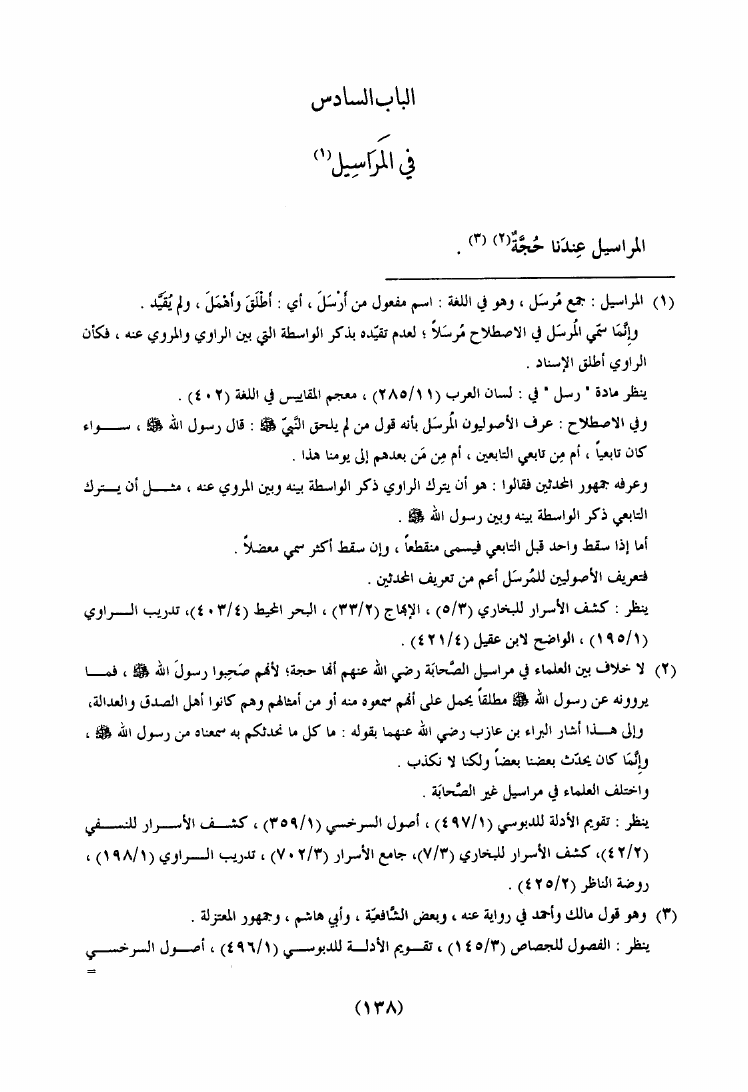 الباب السادس
في المَرَاسِيل(١)
المراسيل عِندَنا حُجَّةٌ(٢) (٣) .
(١) المراسيل : جمع مُرسَل ، وهو في اللغة : اسم مفعول من أَرْسَلَ ، أي : أَطْلَقَ وأَهْمَلَ ، ولم يُقَيَّد .
وإنَّمَا سمِّي المُرسَل في الاصطلاح مُرسَلاً ؛ لعدم تقيّده بذكر الواسطة التي بين الراوي والمروي عنه ، فكأن
الراوي أطلق الإسناد .
ينظر مادة " رسل " في : لسان العرب (٢٨٥/١١) ، معجم المقاييس في اللغة (٤٠٢) .
وفي الاصطلاح : عرف الأصوليون المُرسَل بأنه قول من لم يلحق النَّبِيّ ﷺ : قال رسول الله ﷺ ، ســـواء
كان تابعياً ، أم مِن تابعي التابعين ، أم مِن مَن بعدهم إلى يومنا هذا .
وعرفه جمهور المحدثين فقالوا : هو أن يترك الراوي ذكر الواسطة بينه وبين المروي عنه ، مثـــل أن يـــترك
التابعي ذكر الواسطة بينه وبين رسول الله ﷺ .
أما إذا سقط واحد قبل التابعي فيسمى منقطعاً ، وإن سقط أكثر سمي معضلاً .
فتعريف الأصوليين للمُرسَل أعم من تعريف المحدثين .
ينظر : كشف الأسرار للبخاري (٥/٣) ، الإبهاج (٣٣/٢) ، البحر المحيط (٤٠٣/٤)، تدريب الـــراوي
(١٩٥/١) ، الواضح لابن عقيل (٤٢١/٤) .
(٢) لا خلاف بين العلماء في مراسيل الصَّحابَة رضي الله عنهم أنها حجة؛ لأنهم صَحِبوا رسولَ الله ﷺ ، فمـــا
يروونه عن رسول الله ﷺ مطلقاً يحمل على أنهم سمعوه منه أو من أمثالهم وهم كانوا أهل الصدق والعدالة،
وإلى هـــذا أشار البراء بن عازب رضي الله عنهما بقوله : ما كل ما نحدثكم به سمعناه من رسول الله ﷺ ،
وإنَّمَا كان يحدّث بعضنا بعضاً ولكنا لا نكذب .
واختلف العلماء في مراسيل غير الصَّحابَة .
ينظر : تقويم الأدلة للدبوسي (٤٩٧/١) ، أصول السرخسي (٣٥٩/١) ، كشـــف الأســـرار للنســـفي
(٤٢/٢)، كشف الأسرار للبخاري (٧/٣)، جامع الأسرار (٧٠٢/٣) ، تدريب الـــراوي (١٩٨/١) ،
روضة الناظر (٤٢٥/٢) .
(٣) وهو قول مالك وأحمد في رواية عنه ، وبعض الشَّافعيّة ، وأبي هاشم ، وجمهور المعتزلة .
ينظر : الفصول للجصاص (١٤٥/٣) ، تقـــويم الأدلـــة للدبوســـي (٤٩٦/١) ، أصـــول السرخســـي
=
(١٣٨)